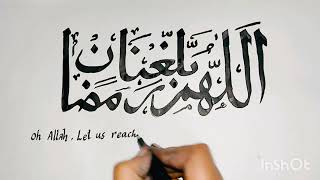 اللهم بلغنا رمضان
oh Allah, Let us reach
InShOt